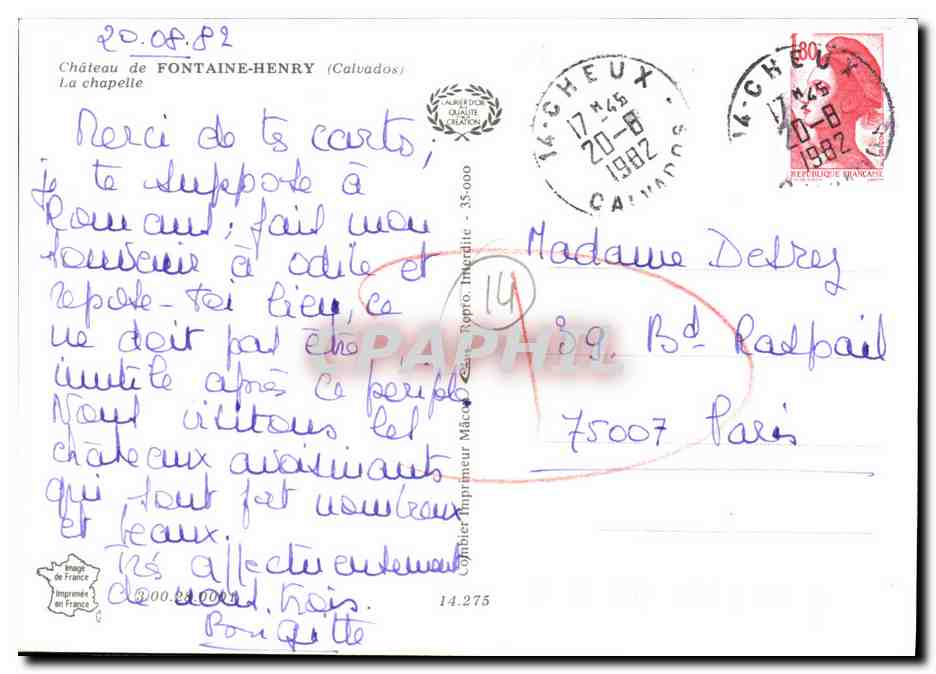 20.08.82
Château de FONTAINE-HENRY (Calvados)
La chapelle
Merci de ts carts,
je te suppose à
fais mon
souvenir à Odile et
repose-toi bien, ce
ne doit pas être
inutile après ce périple.
Nous visitons les
châteaux avoisinants
qui sont fort nombreux
et beaux.
Très affectueusement
de nous trois.
Brigitte
Image
de France
Imprimée
en France
3.00.28.0001
14.275
LAURIER D'OR
QUALITE
CREATION
Combier Imprimeur Mâcon
Repro. Interdite - 35-000
14-CHEUX
17H45
20-8
1982
CALVADOS
14-CHEUX
17H45
20-8
1982
1,80
REPUBLIQUE FRANÇAISE
14
Madame Desrey
39. Bd Raspail
75007 Paris
CPAPHIL